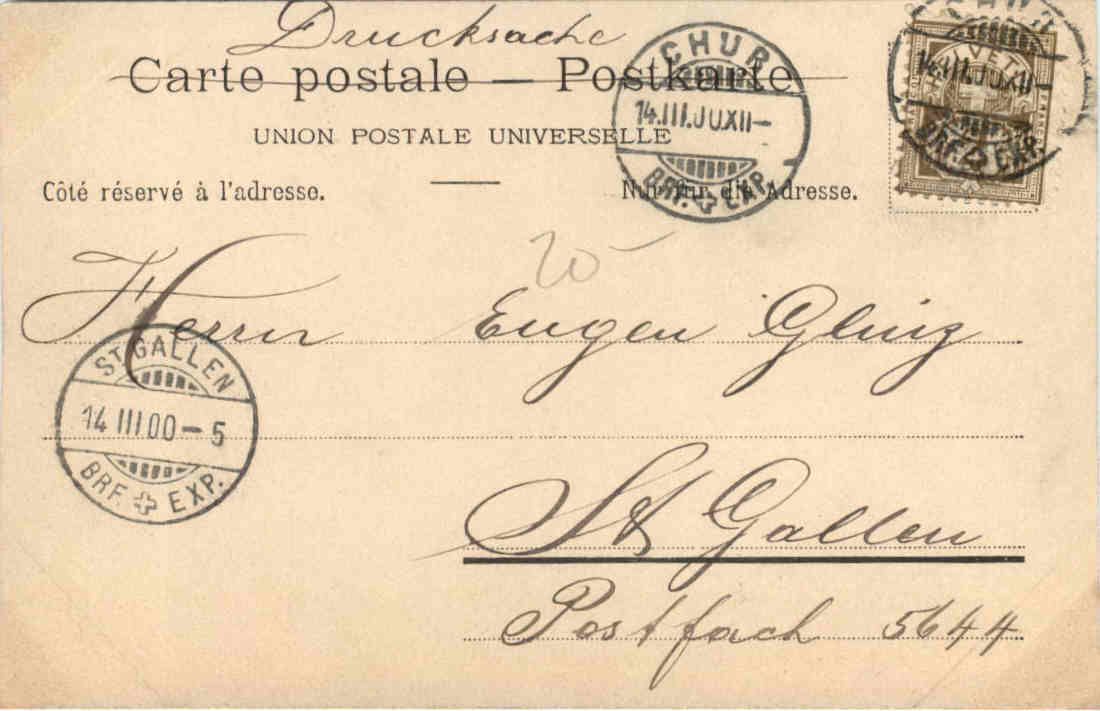 Drucksache
Carte postale — Postkarte
UNION POSTALE UNIVERSELLE
Côté réservé à l'adresse. Nur für die Adresse.
CHUR
14.III.00.XII-
BRF. EXP.
14.III.00.XII-
BRF. EXP.
20-
Herrn Eugen Gling
ST. GALLEN
14 III 00-5
BRF. EXP.
St Gallen
Postfach 5644